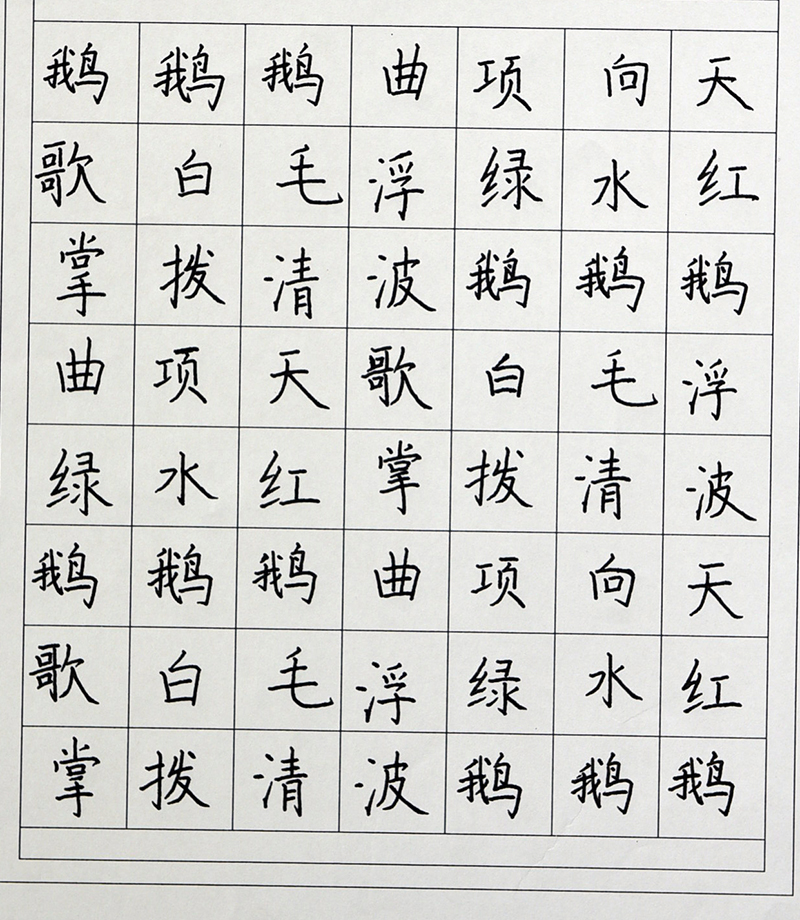 鹅鹅鹅曲项向天
歌白毛浮绿水红
掌拨清波鹅鹅鹅
曲项天歌白毛浮
绿水红掌拨清波
鹅鹅鹅曲项向天
歌白毛浮绿水红
掌拨清波鹅鹅鹅